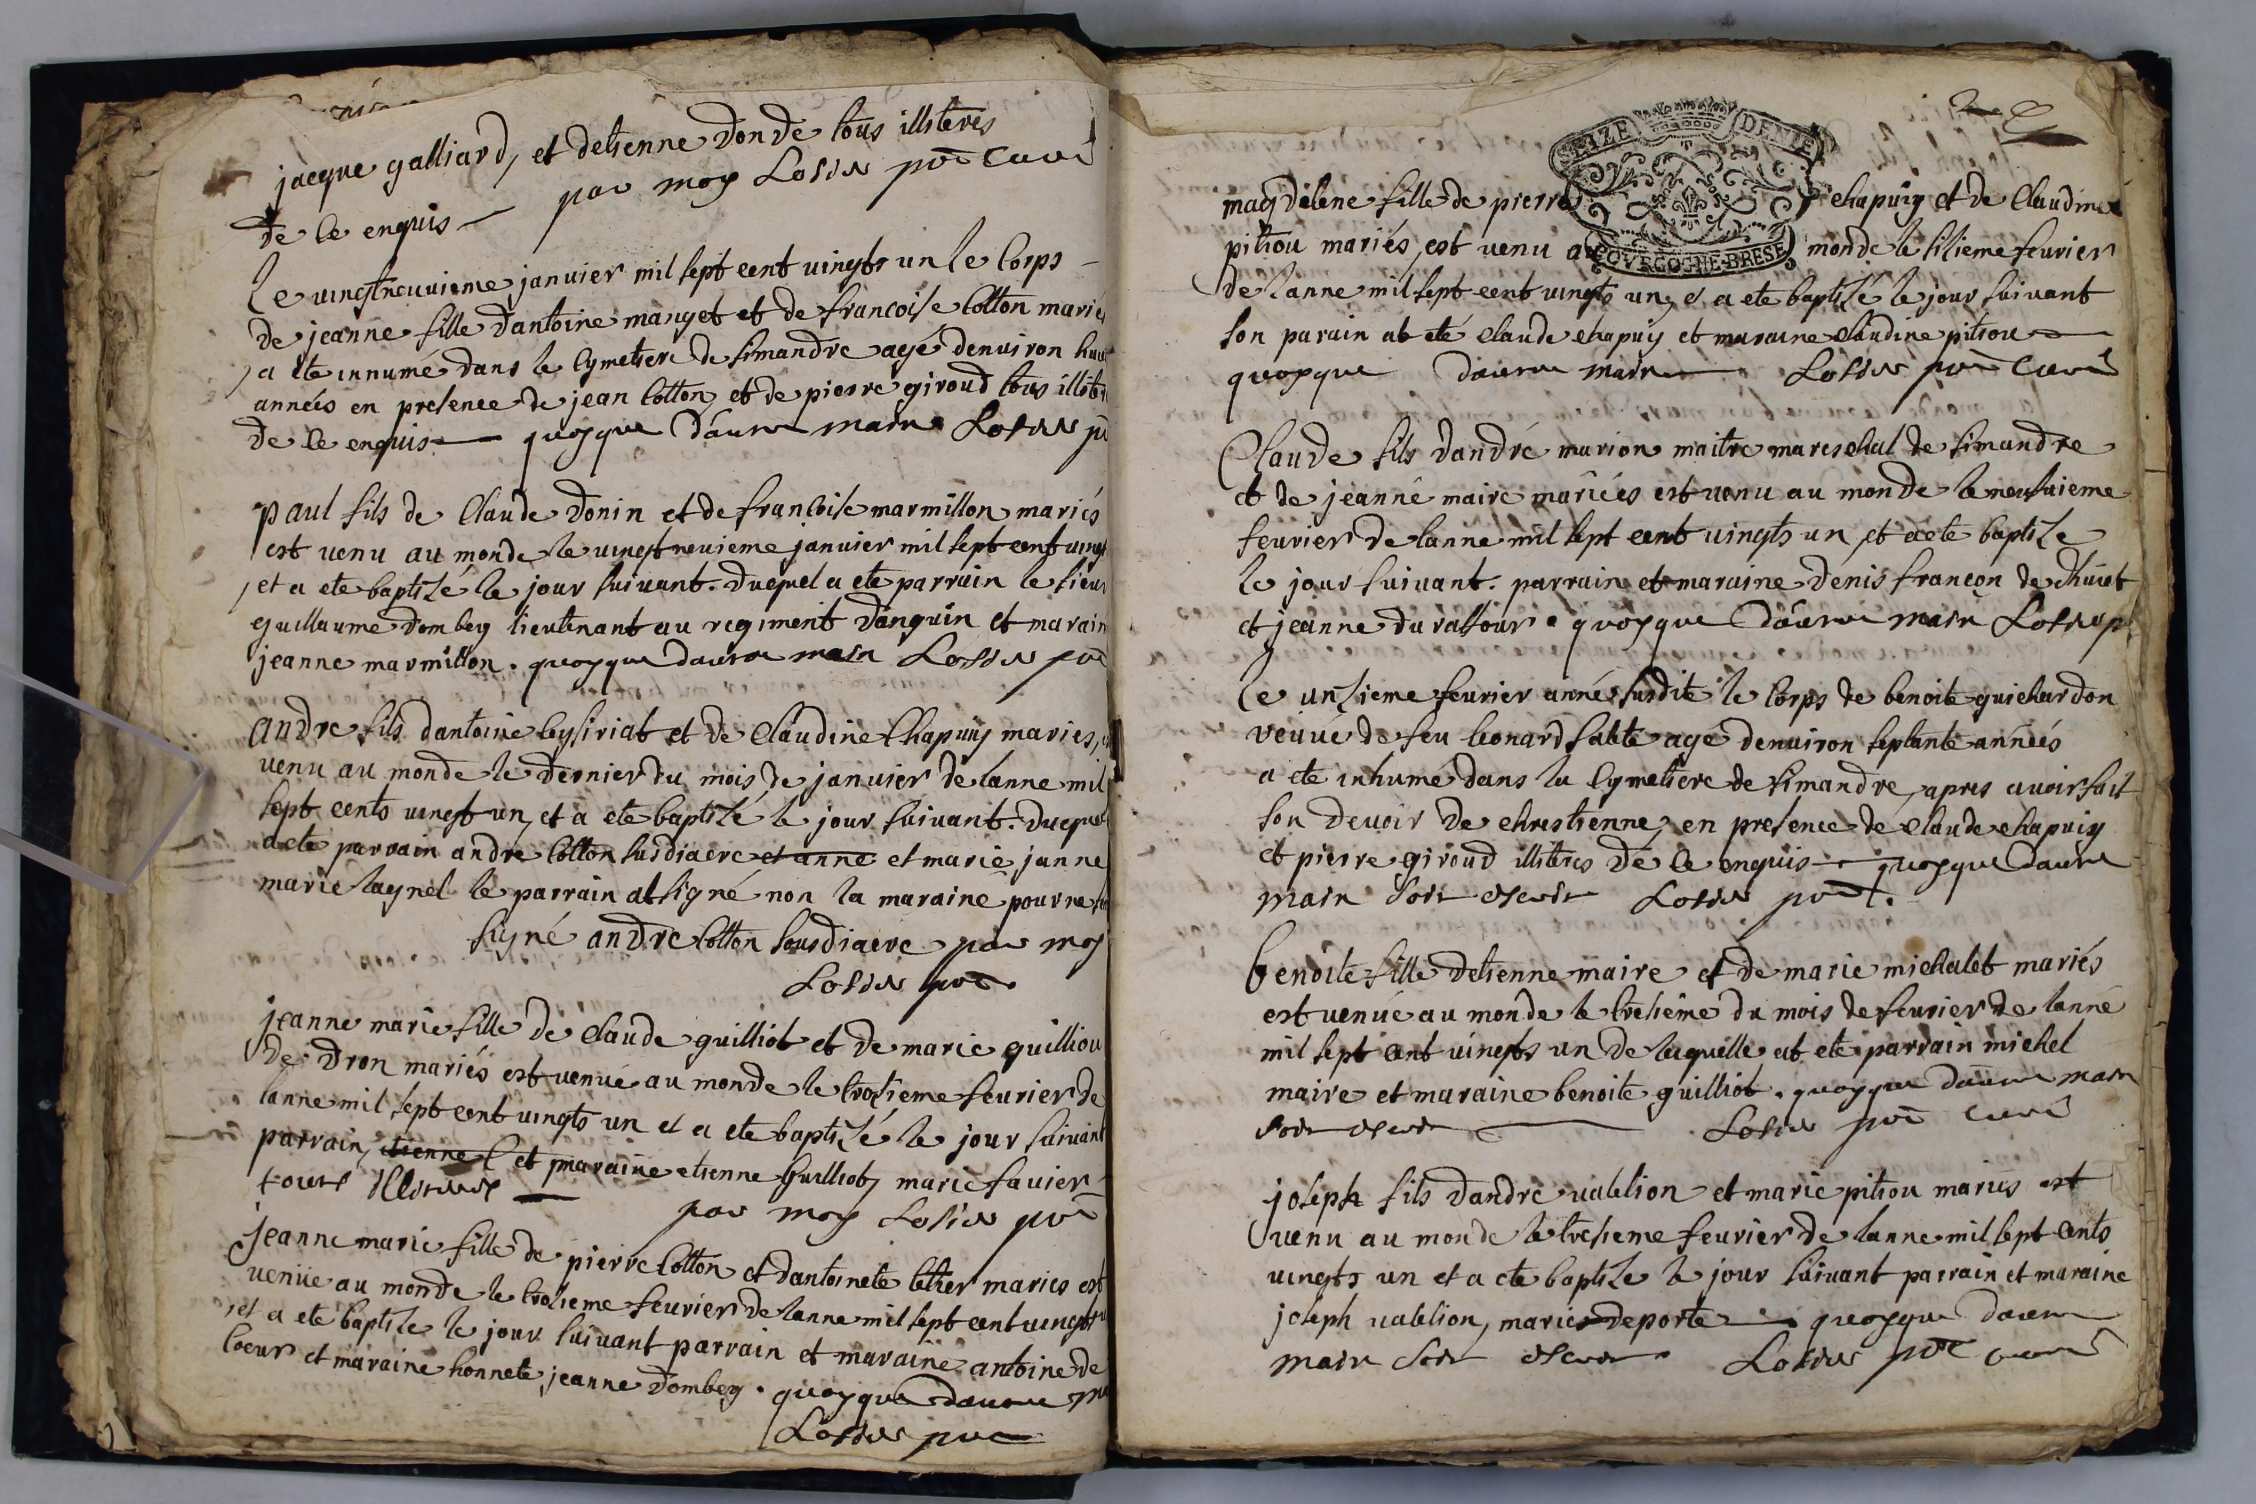 jacque galliard, et detienne donde tous illiteres
de ce enquis — par moy Losier pre Curé
Le vingtneuvieme janvier mil sept cent vingts un le corps
de jeanne fille dantoine manget et de francoise Cotton mariés
a ete innumé dans le Cymetiere de simandre agé denviron huit
années en presence de jean Cotton, et de pierre giroud tous illite
de ce enquis — quoyque dautre main Losier p
paul fils de Claude Donin et de francoise marmillon mariés
est venu au monde le vingtneuvieme janvier mil sept cent vingt
et a ete baptisé le jour suivant. Duquel a ete parrain le sieur
guillaume Dombey lieutenant au regiment Danguin et marain
jeanne marmillon. quoyque dautre main Losier pre
andre fils dantoine leysiriat et de Claudine Chapuiy maries,
venu au monde le dernier du mois de janvier de lanne mil
sept cents vingt un, et a ete baptisé le jour suivant. Duquel
a ete parrain andre Cotton susdiacre et anne et marie janne
marie laynel le parrain at signé non la maraine pour ne
signé andre Cotton sousdiacre par moy
Losier pre.
jeanne marie fille de Claude guilliot et de marie guilliou
de dron mariés est venue au monde le troisieme fevrier de
lanne mil sept cent vingts un et a ete baptisé le jour suivant
parrain, etienne et maraine etienne Guilliot, marie favier
touts illiteres — par moy Losier pre
jeanne marie fille de pierre Cotton et dantoinete letier maries est
venüe au monde le troisieme fevrier de lanne mil sept cent vingts
et a ete baptise le jour suivant parrain et maraine antoine de
Coeur et maraine honnete jeanne Dombey. quoyque dautre
Losier pre
SEIZE DENIE
BOURGOGNE-BRESE
2
magdelene fille de pierre chapuiy et de Claudine
pitiou mariés, est venu au monde le sisieme fevrier
de lanne mil sept cent vingts un, et a ete baptisé le jour suivant
son parain at eté Claude chapuiy et maraine claudine pitiou
quoyque dautre main Losier pre Curé
Claude fils dandré marion maitre mareschal de simandre
et de jeanne maire mariées est venu au monde le neufvieme
fevrier de lanne mil sept cent vingts un, et a ete baptise
le jour suivant. parrain et maraine denis francon de chavet
et jeanne du rassour. quoyque dautre main Losier p
Le unsieme fevrier année susdite le corps de benoite guichardon
veuve de feu leonard sabte agé denviron septante années
a ete inhumé dans la Cymetiere de simandre, apres avoir fait
son devoir de chrestienne, en presence de claude chapuiy
et pierre giroud illiteres de ce enquis — quoyque dautre
main soit escrit Losier pre.
benoite fille detienne maire et de marie michalet mariés
est venüe au monde le tresieme du mois de fevrier de lanné
mil sept cent vingts un de laquelle at ete parrain michel
maire et maraine benoite guilliot. quoyque dautre main
soit escrit — Losier pre Curé
joseph fils dandré valelion et marie pitiou mariés est
venu au monde le tresieme fevrier de lanne mil sept cents
vingts un et a ete baptise le jour suivant parrain et maraine
joseph valelion, marie deporte — quoyque dautre
main soit escrit. Losier pre curé